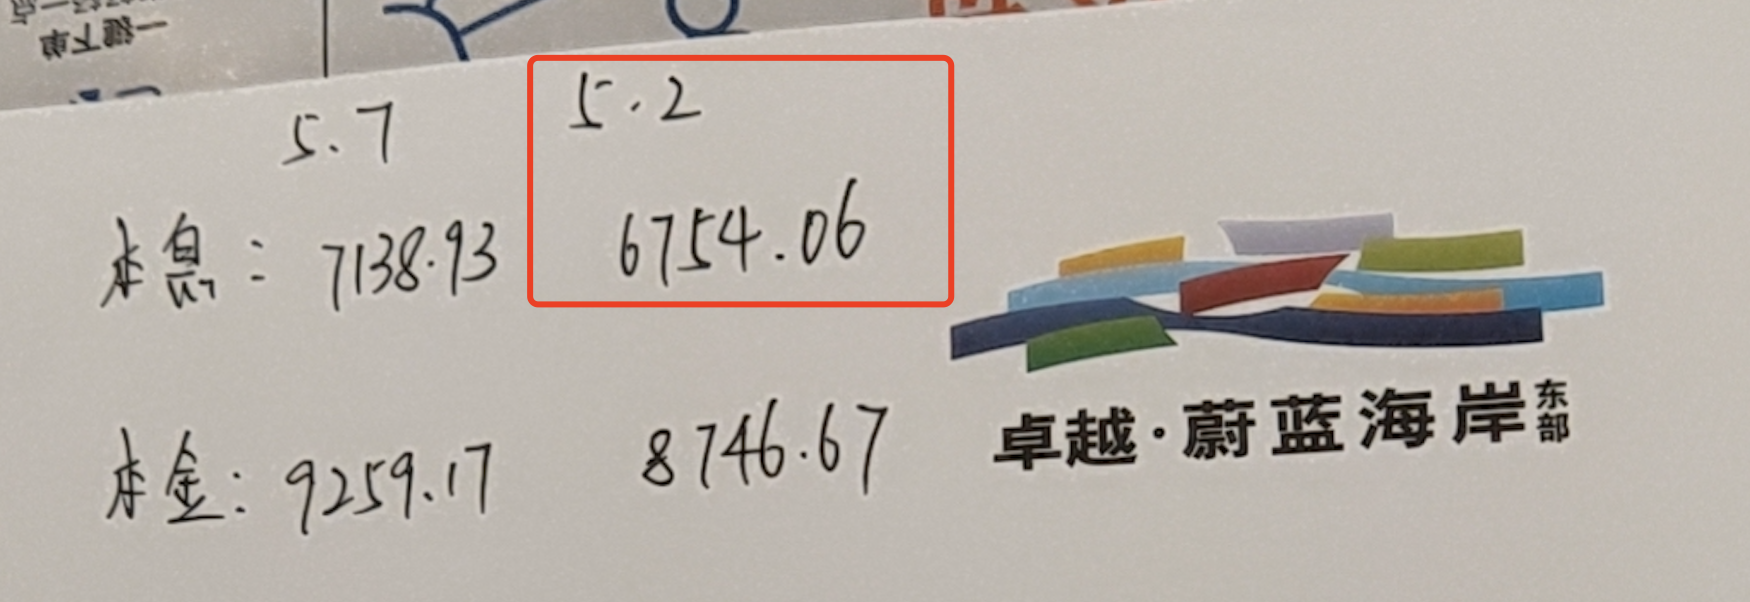 一键下单
5.7 5.2
本息: 7138.93 6754.06
本金: 9259.17 8746.67
卓越·蔚蓝海岸东部